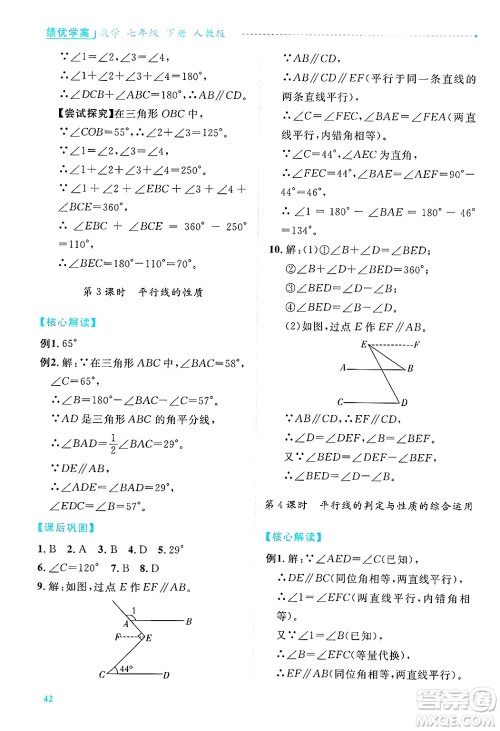 绩优学案 数学 七年级 下册 人教版
∵∠1=∠2=∠3=∠4，
∴∠1+∠2=∠3+∠4，
∴∠DCB+∠ABC=180°，∴AB∥CD.
【尝试探究】在三角形OBC中，
∵∠COB=55°，∴∠2+∠3=125°，
∴∠1+∠2+∠3+∠4=250°.
∵∠1+∠2+∠EBC+∠3+∠4+
∠BCE=360°，
∴∠EBC+∠BCE=360°-250°=
110°，
∴∠BEC=180°-110°=70°.
第3课时 平行线的性质
【核心解读】
例1. 65°
例2. 解：∵在三角形ABC中，∠B=58°，
∠C=65°，
∴∠BAC=180°-∠B-∠C=57°.
∵AD是三角形ABC的角平分线，
∴∠BAD=1/2∠BAC=28.5°.
∵DE∥AB，
∴∠ADE=∠BAD=28.5°.
【课后巩固】
1. B 2. C 3. B 4. A 5. 29°
6. ∠C=120° 7. B 8. D
9. 解：如图，过点E作EF∥AB.
A
B
F
E
44°
C
D
42
∵AB∥CD，
∴AB∥CD∥EF(平行于同一条直线的
两条直线平行)，
∴∠C=∠FEC，∠BAE=∠FEA(两
直线平行，内错角相等).
∵∠AEC为直角，
∴∠FEC+∠FEA=∠C+∠BAE=
∠C+180°-∠1=90°.
∵∠C=44°，∴∠1=180°-90°+44°
=134°.
10. 解：(1)①∠B+∠D=∠E
②∠B+∠D+∠E=360°
③∠B=∠D+∠E
④∠D=∠B+∠E
(2)如图，过点E作EF∥AB.
E
F
A
B
C
D
∵AB∥CD，
∴AB∥EF∥CD，
∴∠D=∠DEF，∠B=∠BEF.
又∵∠DEF=∠BEF+∠BED，
∴∠D=∠B+∠BED.
第4课时 平行线的判定与性质的综合运用
【核心解读】
例1. ∵∠AED=∠C(已知)，
∴DE∥BC(同位角相等，两直线平行)，
∴∠ADE=∠B(两直线平行，同位角
相等).
∵∠1=∠EFC(两直线平行，
内错角相等)，
∴∠B=∠EFC(等量代换)，
∴EF∥AB(同位角相等，两直线平行).
答案圈
MXQE.COM